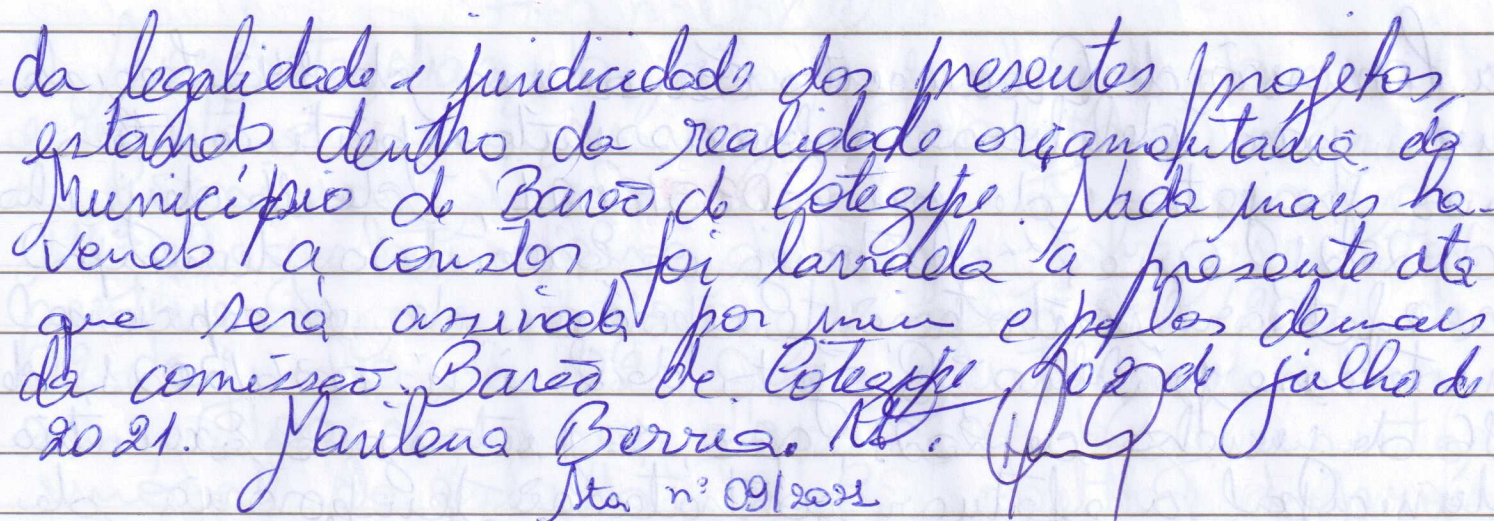 da legalidade e juridicidade dos presentes projetos,
estando dentro da realidade orçamentária do
Município de Barão de Cotegipe. Nada mais ha-
vendo a constar foi lavrada a presente ata
que será assinada por mim e pelos demais
da comissão. Barão de Cotegipe 02 de julho de
2021. Marilena Berria.
Ata nº 09/2021